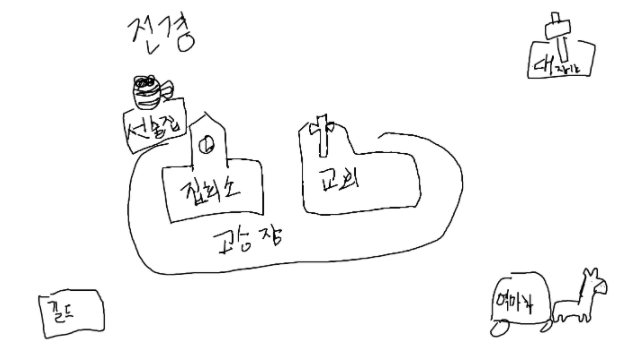 전경
대장간
선술집
집회소
교회
광장
길드
역마차